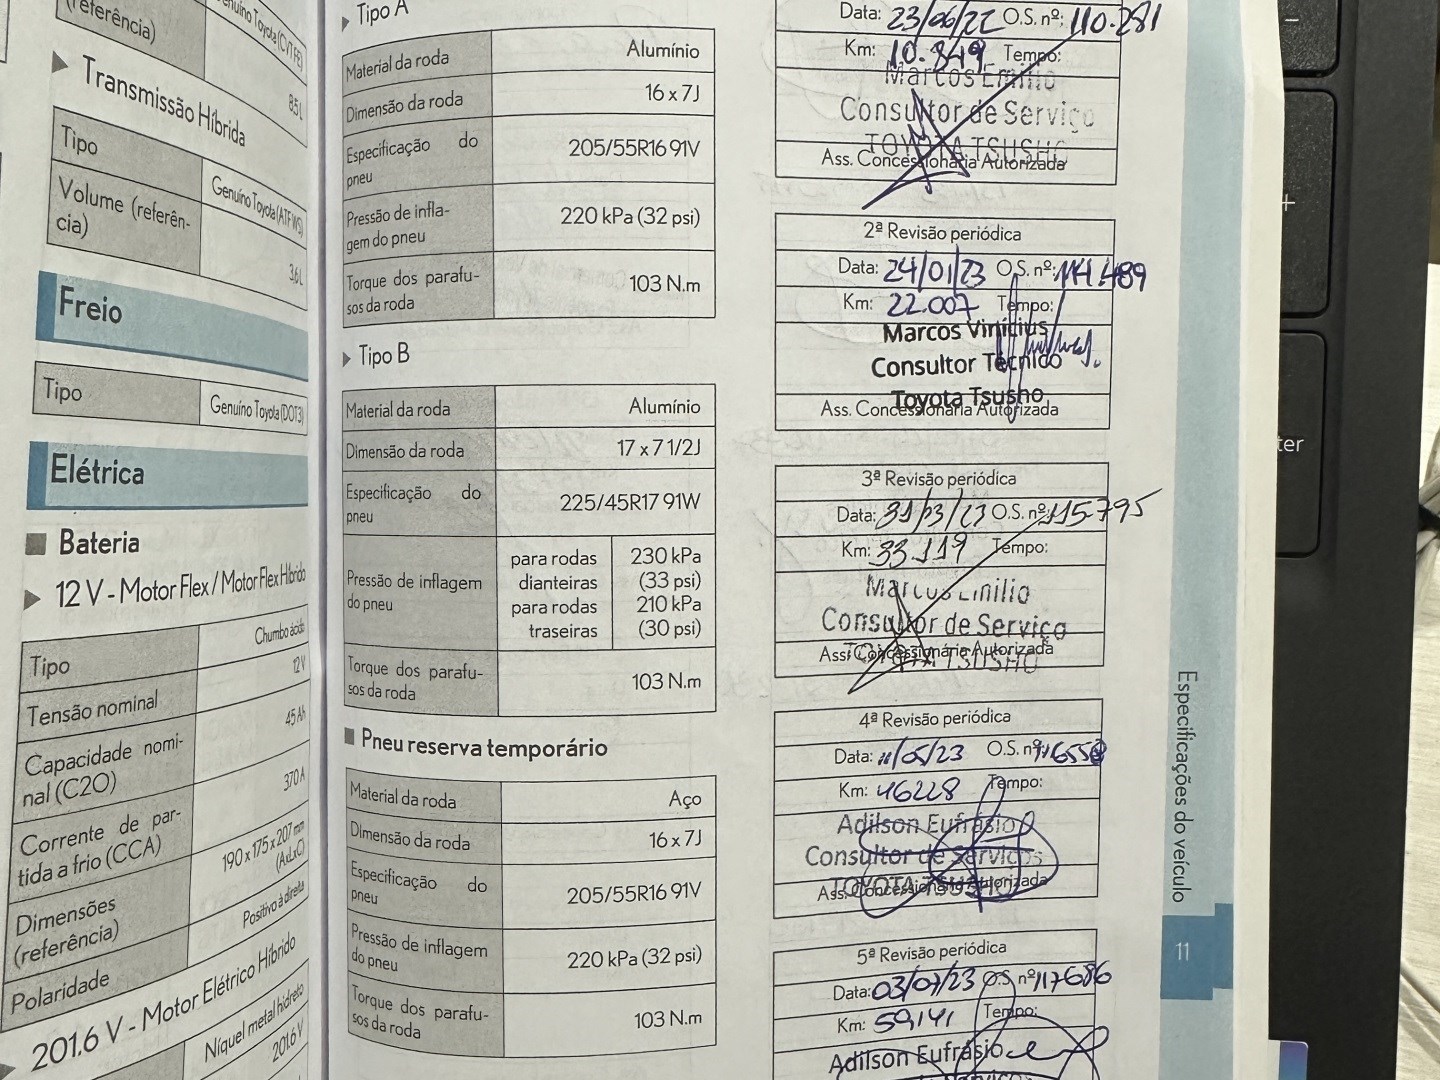 (referência)
Genuíno Toyota (CVT FE)
8.5 L
Transmissão Híbrida
Tipo
Genuíno Toyota (ATF WS)
Volume (referên-
cia)
3.6 L
Freio
Tipo
Genuíno Toyota (DOT3)
Elétrica
Bateria
12 V - Motor Flex / Motor Flex Híbrido
Tipo
Chumbo ácido
Tensão nominal
12 V
Capacidade nomi-
nal (C20)
45 Ah
Corrente de par-
tida a frio (CCA)
370 A
Dimensões
(referência)
190 x 175 x 207 mm
(AxLxC)
Polaridade
Positivo à direita
201.6 V - Motor Elétrico Híbrido
Níquel metal hidreto
201.6 V
Tipo A
Material da roda
Alumínio
Dimensão da roda
16 x 7J
Especificação do
pneu
205/55R16 91V
Pressão de infla-
gem do pneu
220 kPa (32 psi)
Torque dos parafu-
sos da roda
103 N.m
Tipo B
Material da roda
Alumínio
Dimensão da roda
17 x 7 1/2J
Especificação do
pneu
225/45R17 91W
Pressão de inflagem
do pneu
para rodas
dianteiras
230 kPa
(33 psi)
para rodas
traseiras
210 kPa
(30 psi)
Torque dos parafu-
sos da roda
103 N.m
Pneu reserva temporário
Material da roda
Aço
Dimensão da roda
16 x 7J
Especificação do
pneu
205/55R16 91V
Pressão de inflagem
do pneu
220 kPa (32 psi)
Torque dos parafu-
sos da roda
103 N.m
Data: 23/06/22 O.S. nº: 110.281
Km: 10.849 Tempo:
Marcos Emilio
Consultor de Serviço
TOYOTA TSUSHO
Ass. Concessionária Autorizada
2ª Revisão periódica
Data: 24/01/23 O.S. nº: 114.489
Km: 22.007 Tempo:
Marcos Vinícius
Consultor Técnico
Toyota Tsusho
Ass. Concessionária Autorizada
3ª Revisão periódica
Data: 31/03/23 O.S. nº: 115.795
Km: 33.119 Tempo:
Marcos Emilio
Consultor de Serviço
TOYOTA TSUSHO
Ass. Concessionária Autorizada
4ª Revisão periódica
Data: 11/05/23 O.S. nº:
Km: 46228 Tempo:
Adilson Eufrásio
Consultor de Serviços
TOYOTA TSUSHO
Ass. Concessionária Autorizada
5ª Revisão periódica
Data: 03/07/23 O.S. nº 117686
Km: 59141 Tempo:
Adilson Eufrásio
Especificações do veículo
11
-
+
ter